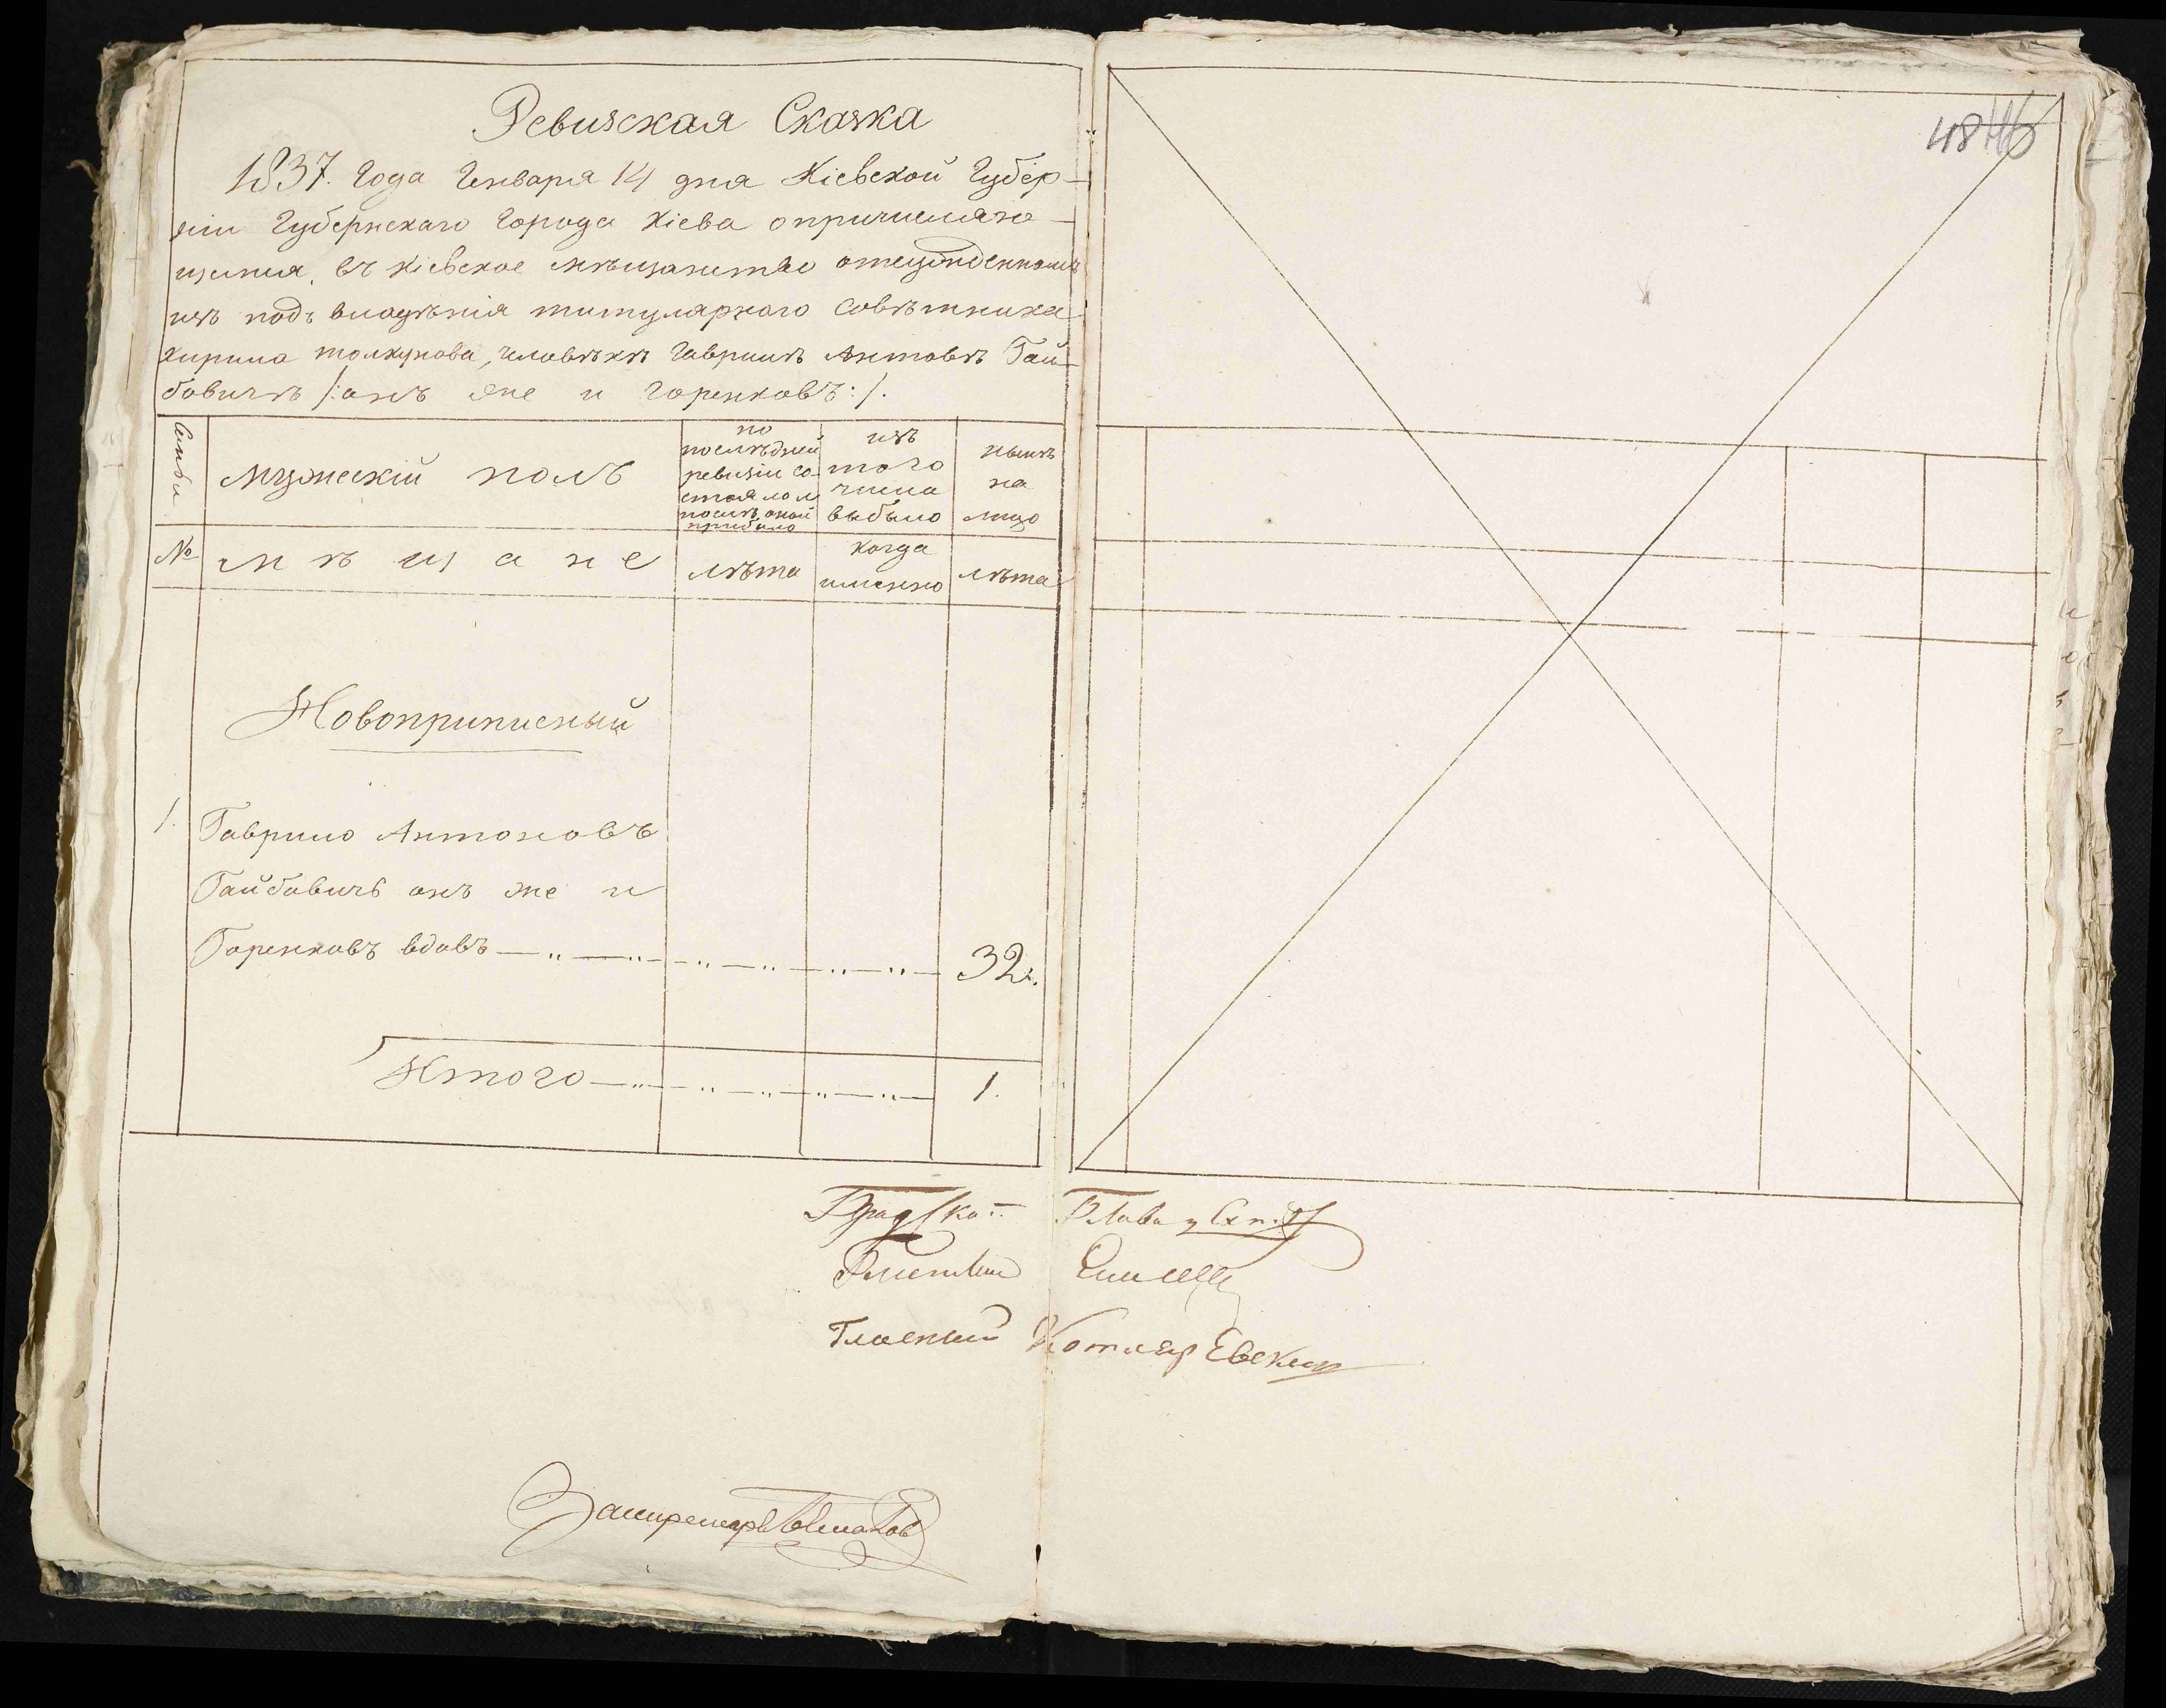 Ревизская Сказка
1837. Года Генваря 14 дня Кіевской Губер-
ніи Губернскаго Города Кіева опричисляю-
щемся, въ Кіевское мѣщанство
изъ подъ владѣнія титулярнаго Совѣтника
Кирила толкунова, человѣкѣ Гаврилѣ Антовѣ Гай-
бовичѣ /:онъ же и Горенковъ:/.
мужескій полъ
по
послѣдней
ревизіи со-
стояло и
послѣ оной
прибыло
изъ
того
числа
выбыло
нынѣ
на
лицо
№
мѣщане
лѣта
когда
именно
лѣта
Новоприписный
1. Гаврило Антоновъ
Гайбовичъ онъ же и
Горенковъ вдовъ 32.
Итого 1.
48 46
Градская Глава
Гласный
Гласный Котляр